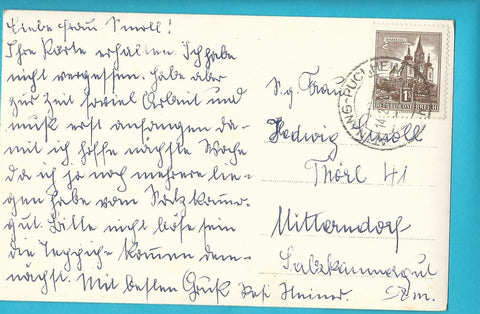 Liebe Frau Smoll!
Ihre Karte erhalten. Ich habe
nicht vergessen. Habe aber
zur Zeit soviel Arbeit und
muß erst anfangen da-
mit ich hoffe nächste Woche
da ich ja noch mehrere lie-
gen habe vom Salzkamm.
gut. Bitte nicht böse sein
die Teppiche kommen dem-
nächst. Mit besten Gruß Heiner.
S.g. Frau
Hedwig Smoll
Thörl 41
Mitterndorf
Salzkammergut
REPUBLIK ÖSTERREICH